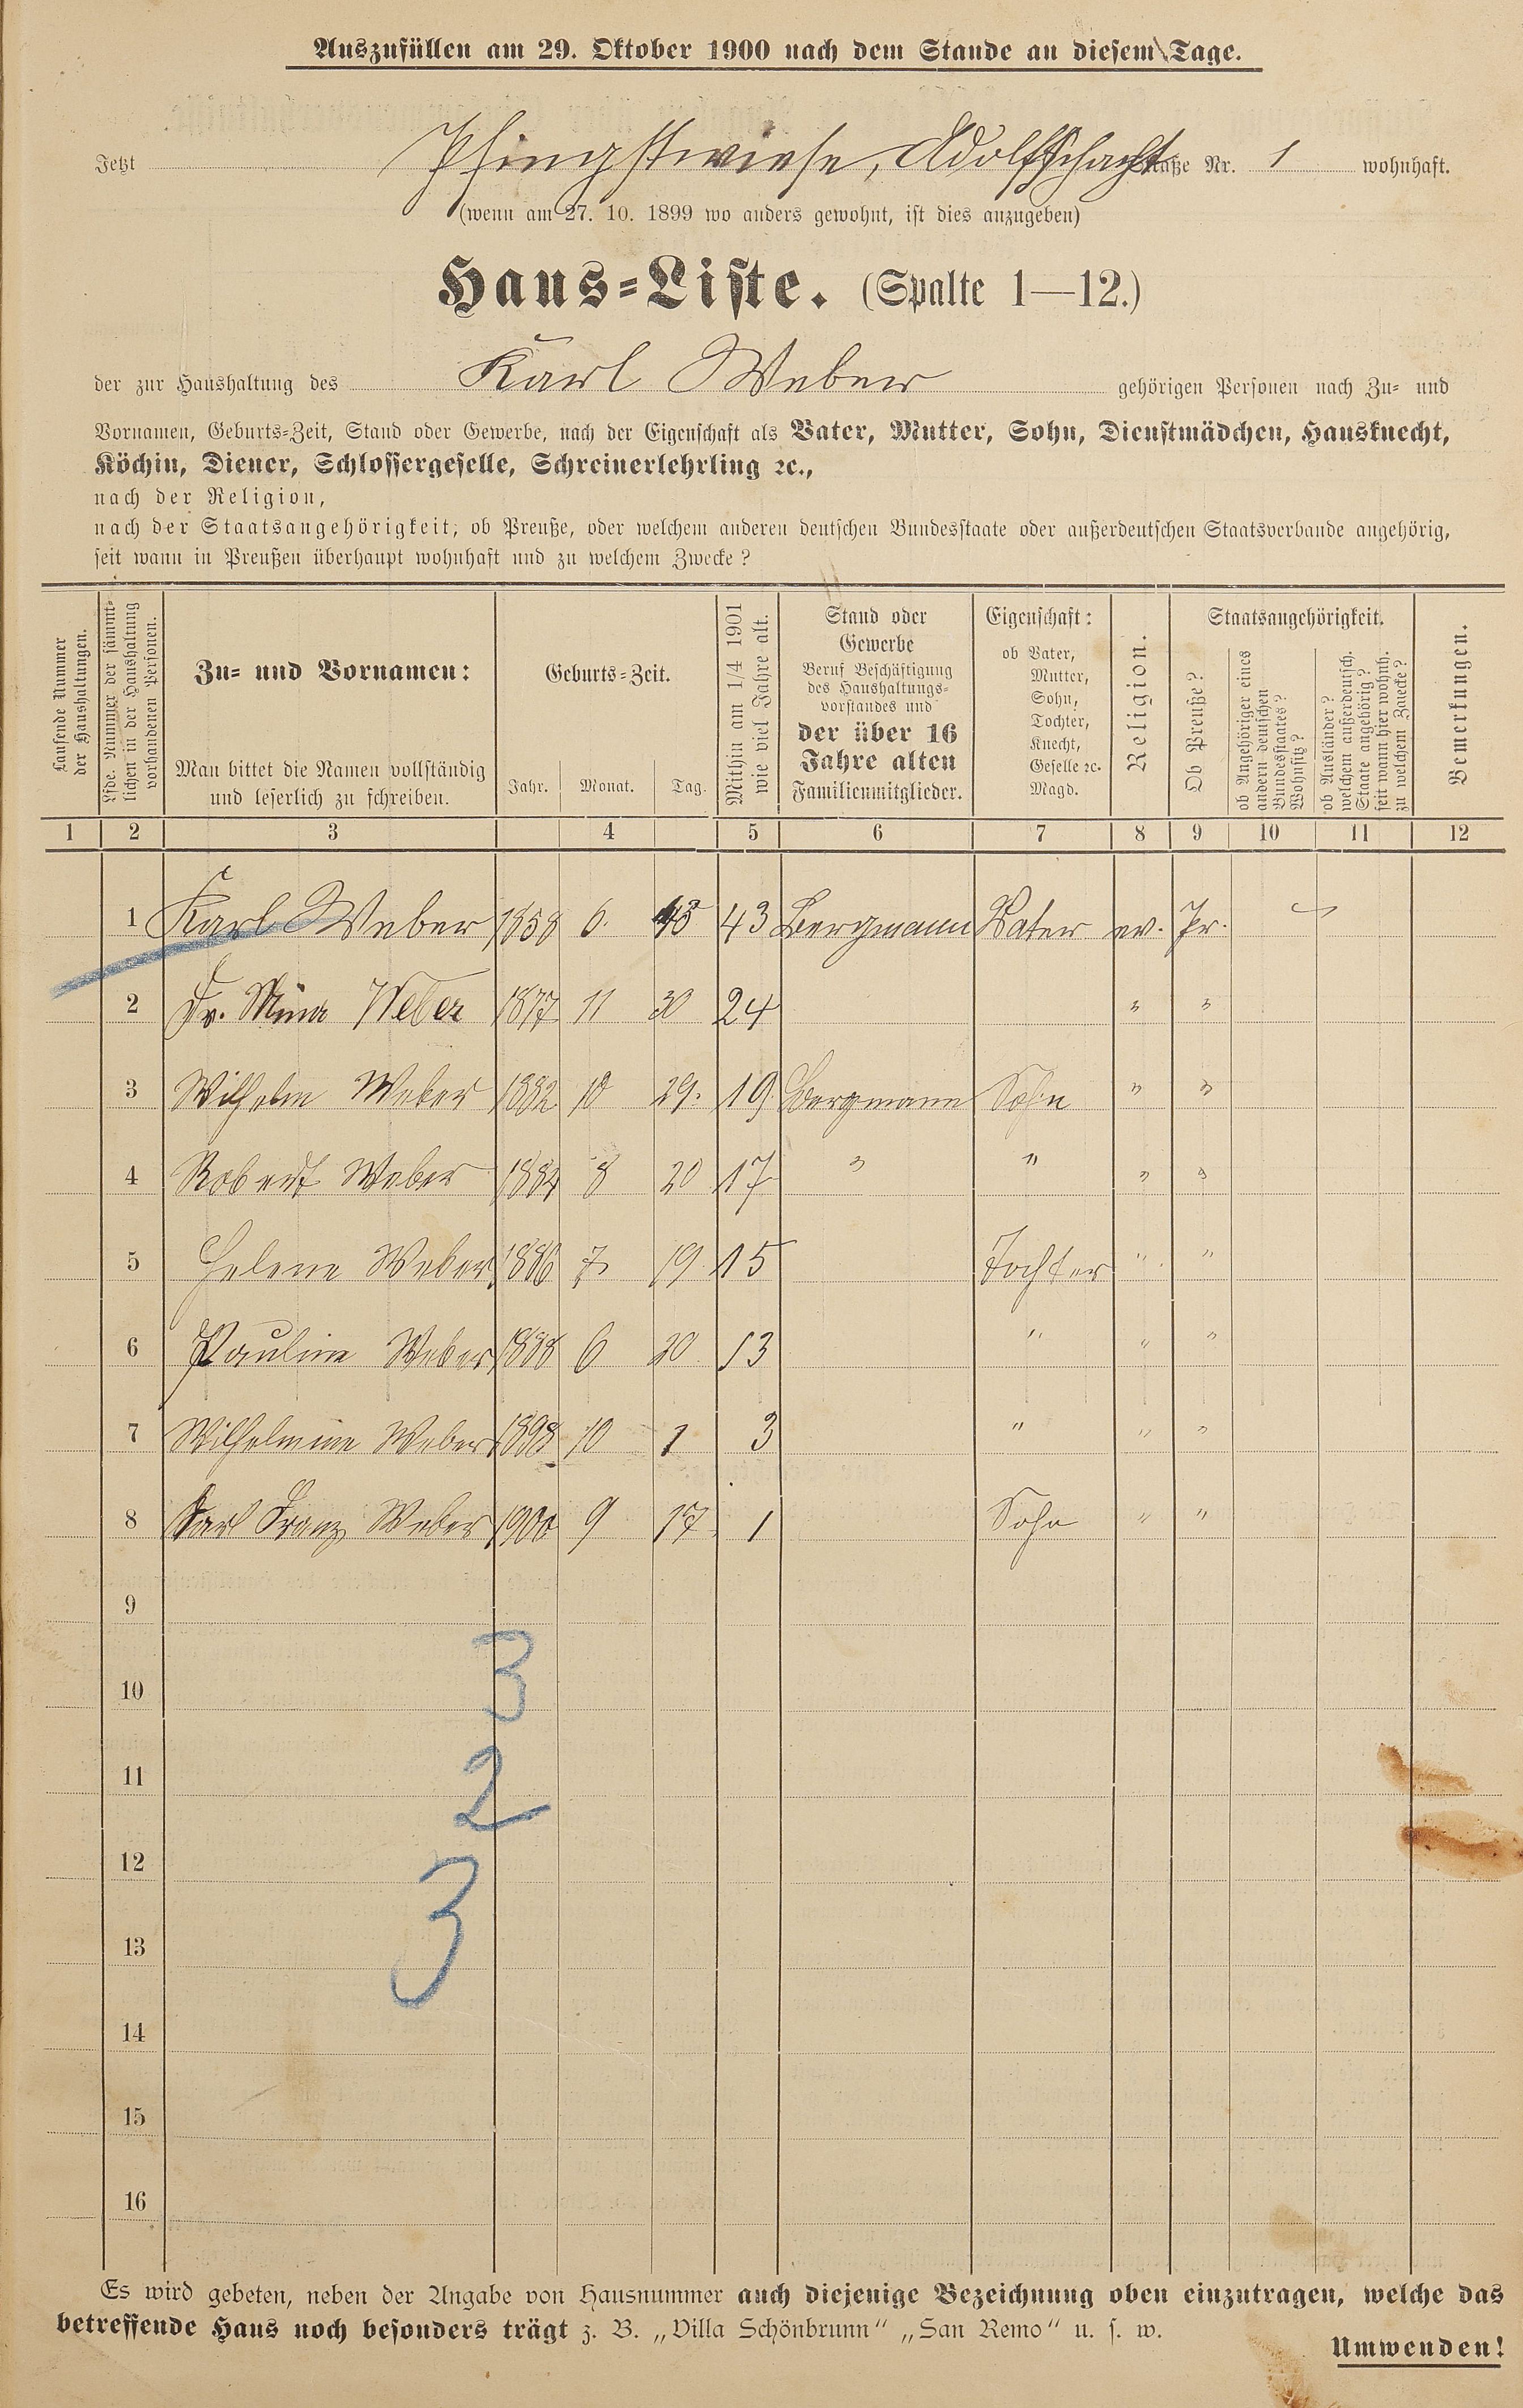 Auszufüllen am 29. Oktober 1900 nach dem Stande an diesem Tage.
Jetzt Pfingstwiese, Adolfschacht Straße Nr. 1 wohnhaft.
(wenn am 27. 10. 1899 wo anders gewohnt, ist dies anzugeben)
Haus-Liste. (Spalte 1—12.)
der zur Haushaltung des Karl Weber gehörigen Personen nach Zu- und
Vornamen, Geburts-Zeit, Stand oder Gewerbe, nach der Eigenschaft als Vater, Mutter, Sohn, Dienstmädchen, Hausknecht,
Köchin, Diener, Schlossergeselle, Schreinerlehrling ꝛc.,
nach der Religion,
nach der Staatsangehörigkeit, ob Preuße, oder welchem anderen deutschen Bundesstaate oder außerdeutschen Staatsverbande angehörig,
seit wann in Preußen überhaupt wohnhaft und zu welchem Zwecke?
Laufende Nummer
der Haushaltungen.
Lfde. Nummer der sämmt-
lichen in der Haushaltung
vorhandenen Personen.
Zu- und Vornamen:
Man bittet die Namen vollständig
und leserlich zu schreiben.
Geburts-Zeit.
Jahr. Monat. Tag.
Mithin am 1/4 1901
wie viel Jahre alt.
Stand oder
Gewerbe
Beruf Beschäftigung
des Haushaltungs-
vorstandes und
der über 16
Jahre alten
Familienmitglieder.
Eigenschaft:
ob Vater,
Mutter,
Sohn,
Tochter,
Knecht,
Geselle ꝛc.
Magd.
Religion.
Staatsangehörigkeit.
Ob Preuße?
ob Angehöriger eines
andern deutschen
Bundesstaates?
Wohnsitz?
ob Ausländer?
welchem außerdeutsch.
Staate angehörig?
seit wann hier wohnh.
zu welchem Zwecke?
Bemerkungen.
1 2 3 4 5 6 7 8 9 10 11 12
1 Karl Weber 1858 6. 43 Bergmann Vater ev. Pr.
2 Fr. Mina Weber 1877 11 30 24 " "
3 Wilhelm Weber 1882 10 29. 19 Bergmann Sohn " "
4 Robert Weber 1884 8 20 17 " " " "
5 Helene Weber 1886 7 19. 15 Tochter " "
6 Pauline Weber 1888 6 20 13 " " "
7 Wilhelmine Weber 1898 10 1 3 " " "
8 Karl Franz Weber 1900 9 17 1 Sohn " "
9
3
10
2
11
12
3
13
14
15
16
Es wird gebeten, neben der Angabe von Hausnummer auch diejenige Bezeichnung oben einzutragen, welche das
betreffende Haus noch besonders trägt z. B. „Villa Schönbrunn“ „San Remo“ u. s. w.
Umwenden!